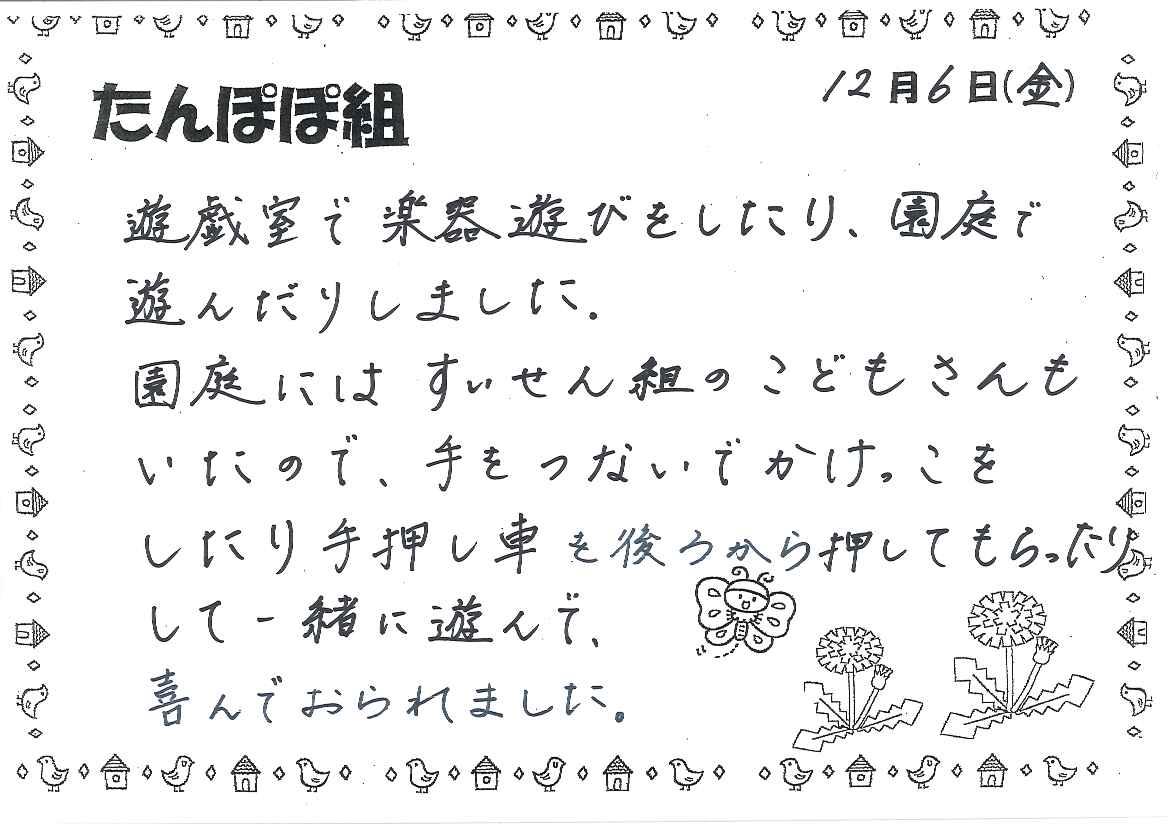 たんぽぽ組
12月6日(金)
遊戯室で楽器遊びをしたり、園庭で
遊んだりしました。
園庭にはすいせん組のこどもさんも
いたので、手をつないでかけっこを
したり手押し車を後ろから押してもらったり
して一緒に遊んで、
喜んでおられました。